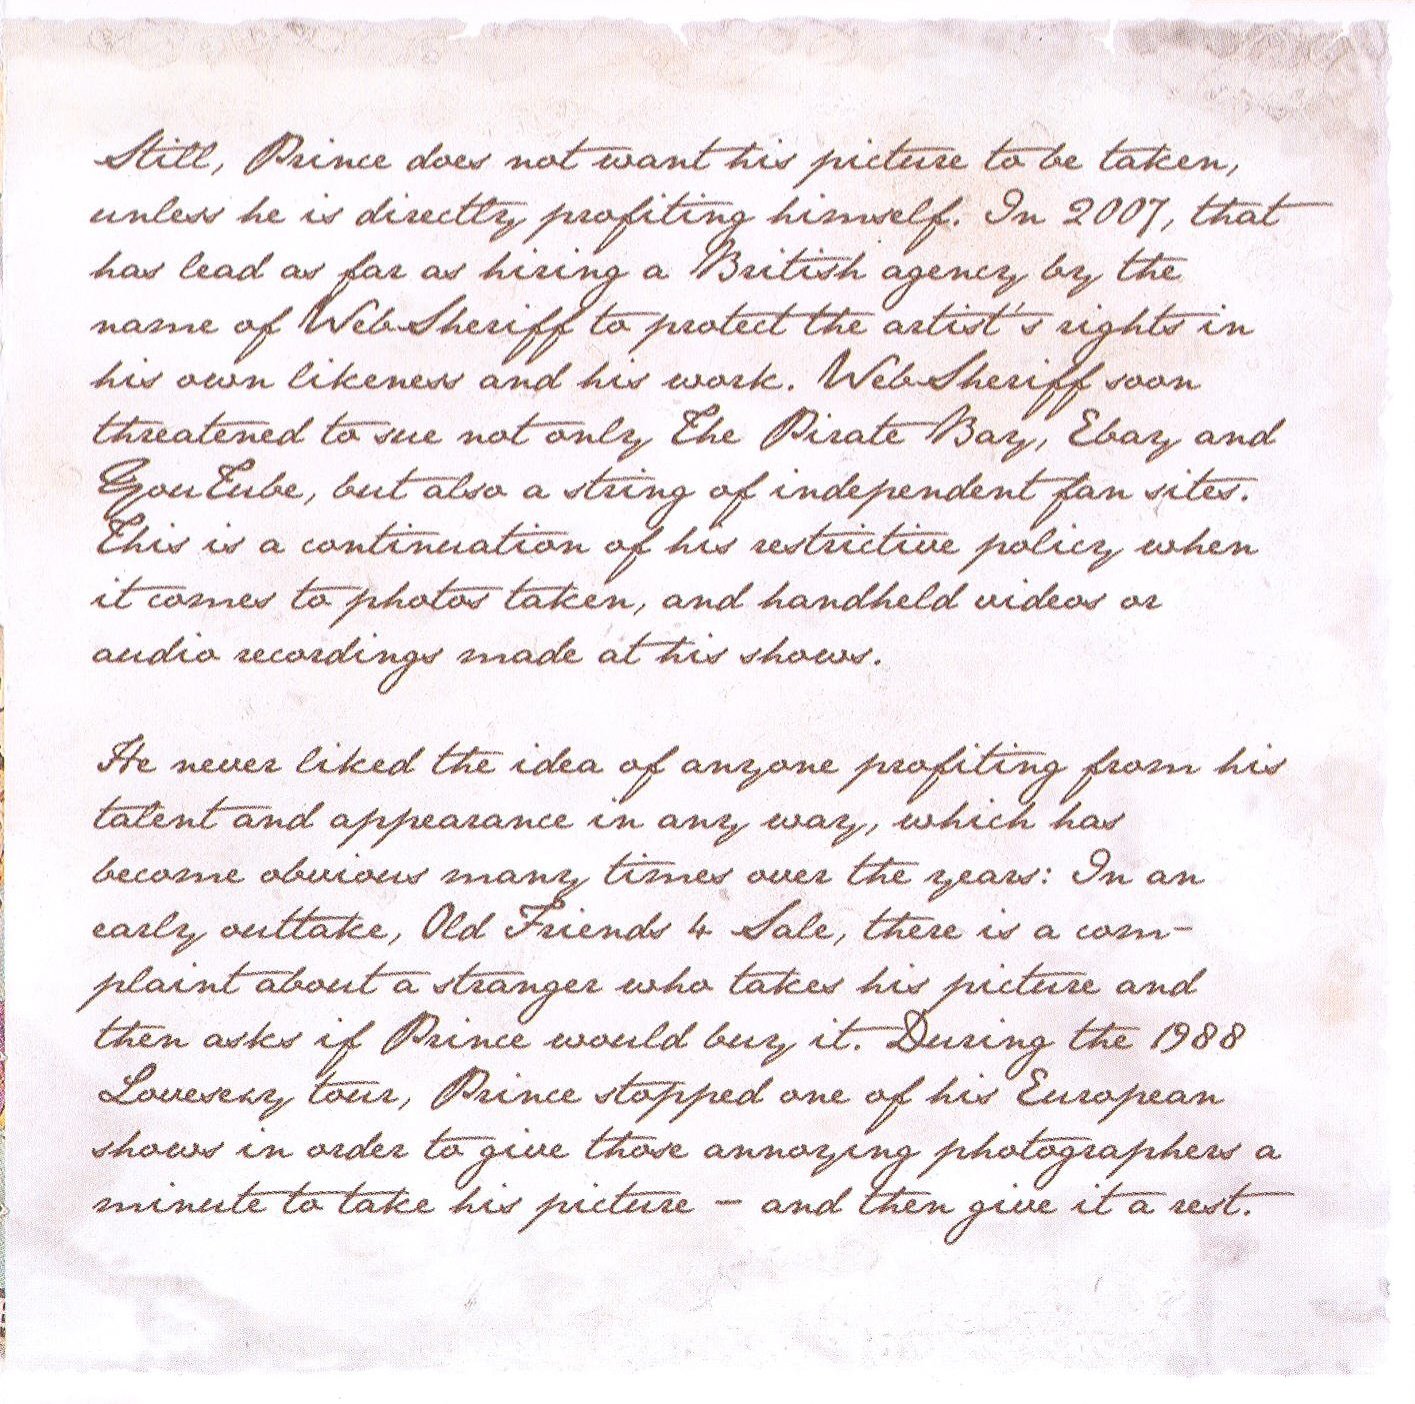 Still, Prince does not want his picture to be taken,
unless he is directly profiting himself. In 2007, that
has lead as far as hiring a British agency by the
name of WebSheriff to protect the artist's rights in
his own likeness and his work. WebSheriff soon
threatened to sue not only The Pirate Bay, Ebay and
YouTube, but also a string of independent fan sites.
This is a continuation of his restrictive policy when
it comes to photos taken, and handheld videos or
audio recordings made at his shows.

He never liked the idea of anyone profiting from his
talent and appearance in any way, which has
become obvious many times over the years: In an
early outtake, Old Friends 4 Sale, there is a com-
plaint about a stranger who takes his picture and
then asks if Prince would buy it. During the 1988
Lovesexy tour, Prince stopped one of his European
shows in order to give those annoying photographers a
minute to take his picture – and then give it a rest.